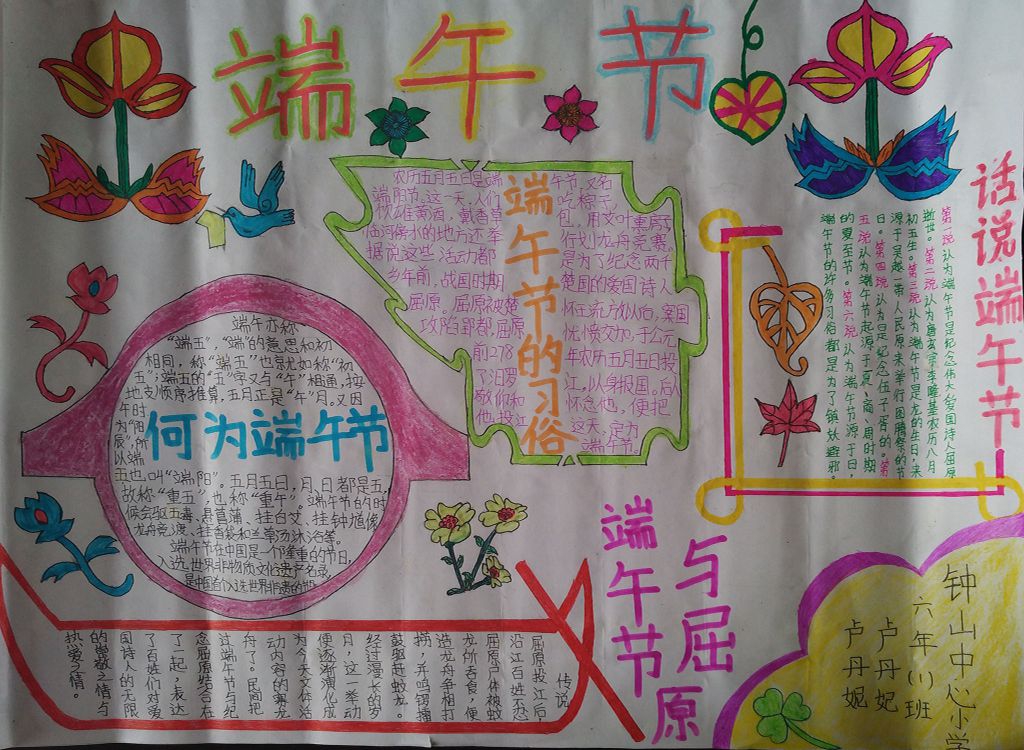 端午节
端午节的习俗
农历五月五日是端午节,又名
端阳节。这一天,人们吃粽子,
饮雄黄酒,戴香草包,用艾叶熏房子,
临河傍水的地方还举行划龙舟竞赛,
据说这些活动都是为了纪念两千
多年前,战国时期楚国的爱国诗人
屈原。屈原被楚怀王流放以后,秦国
攻陷郢都,屈原忧愤交加,于公元
前278年农历五月五日投
了汨罗江,以身报国。后人
敬仰和怀念他,便把
他投江这天,定为
端午节。
何为端午节
端午亦称
“端五”,“端”的意思和初
相同,称“端五”也就如称“初
五”;端五的“五”字又与“午”相通,按
地支顺序推算,五月正是“午”月。又因
午时
为“阳
辰”,所
以端
五也叫“端阳”。五月五日,月、日都是五,
故称“重五”,也称“重午”。端午节的时
候会驱五毒、悬菖蒲、挂白艾、挂钟馗像
龙舟竞渡、挂香袋和兰草汤沐浴等。
端午节在中国是一个隆重的节日,
入选世界非物质文化遗产名录,
话说端午节
第一说认为端午节是纪念伟大爱国诗人屈原
逝世。第二说认为唐玄宗李隆基农历八月
初五生。第三说认为端午节是龙的生日,来
源于吴越一带人民原来举行图腾祭的节
日。第四说认为是纪念伍子胥的。第
五说认为端午节起源于夏、商、周时期
的夏至节。第六说认为端午节源于日,
端午节的许多习俗都是为了镇妖避邪。
端午节
与屈原
传说
屈原投江后
沿江百姓不忍
屈原尸体被蚊
龙所吞食,便
造龙舟争相打
捞,并鸣锣播
鼓驱赶蚊龙。
经过漫长的岁
月,这一举动
便逐渐演化成
为今天文体活
动内容的赛龙
舟了。民间把
过端午节与纪
念屈原结合在
了一起,表达
了百姓们对爱
国诗人的无限
的崇敬之情与
热爱之情。
钟山中心小学
六年(1)班
卢丹妃
卢丹妮